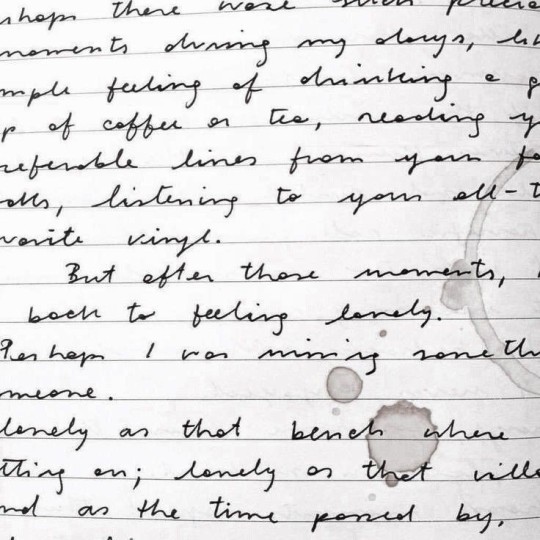 rhaps there were such precio
moments during my days, li
mple feeling of drinking a g
p of coffee or tea, reading y
referable lines from your fa
olks, listening to your all-t
vorite vinyl.
But after those moments, I
back to feeling lonely.
Perhaps I was missing someth
meone.
lonely as that bench where
tting on; lonely as that villa
nd as the time passed by,